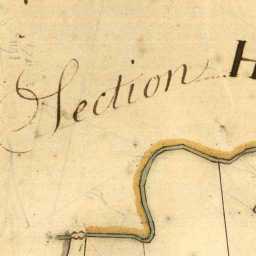 Section H